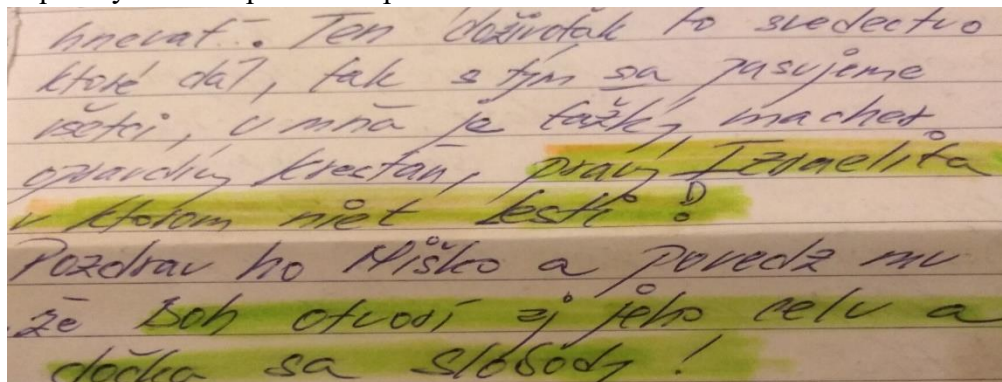 hnevať. Ten doživoťák to svedectvo
ktoré dal, tak s tým sa pasujeme
všetci, u mňa je ťažký macher
opravdivý kresťan, pravý Izraelita
v ktorom niet lesti!
Pozdrav ho Miško a povedz mu
že Boh otvorí aj jeho celu a
dočká sa slobody!